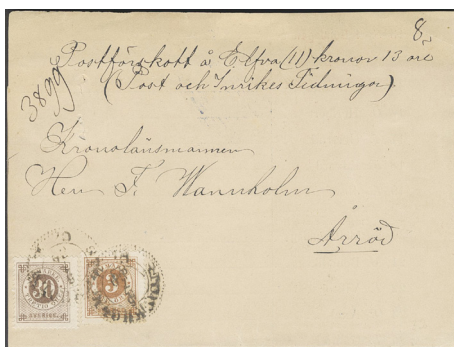 8
Postförskott å Elfva (11) kronor 13 öre
(Post och Inrikes Tidningar)
3899
Kronolänsmannen
Herr F. Wannholm
Arröd
SVERIGE